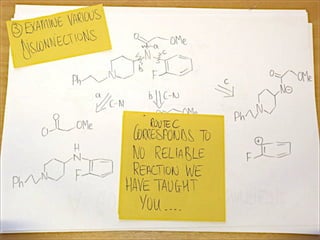 ③ EXAMINE VARIOUS
DISCONNECTIONS
O
OMe
a
N
b
c
F
N
Ph
a
C-N
b
C-N
c
O
OMe
N
N
Ph
O
Cl
OMe
H
N
F
N
Ph
OMe
⊕
F
ROUTE C
CORRESPONDS TO
NO RELIABLE
REACTION WE
HAVE TAUGHT
YOU....